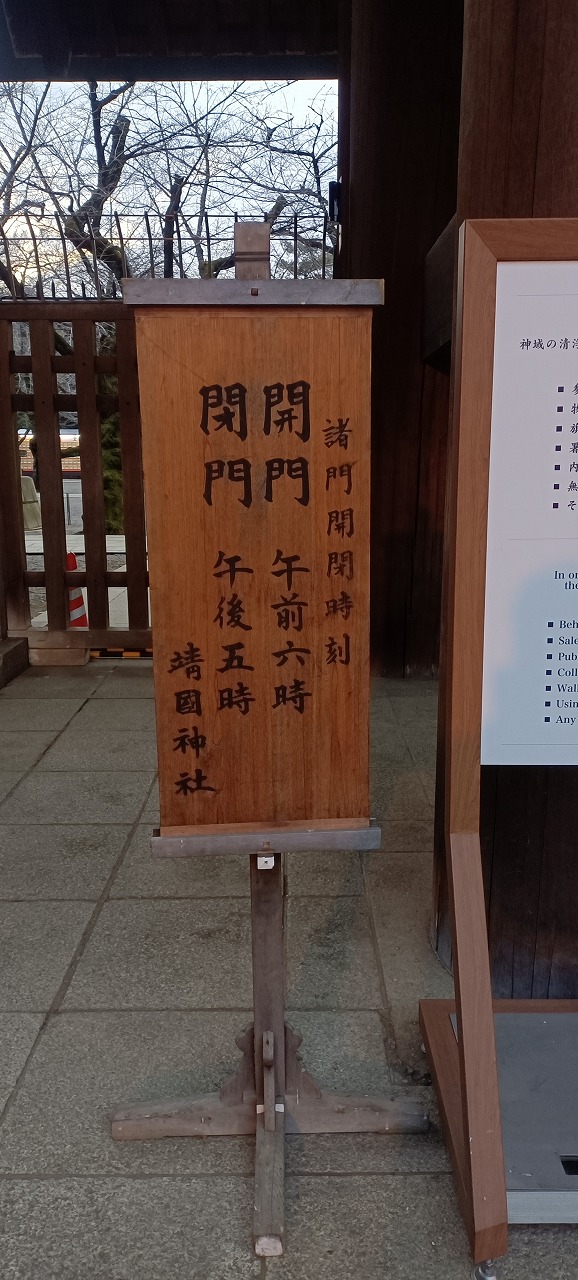 諸門開閉時刻
開門 午前六時
閉門 午後五時
靖國神社
神域の清
In or
the
■ Beh
■ Sale
■ Pub
■ Coll
■ Wal
■ Usin
■ Any